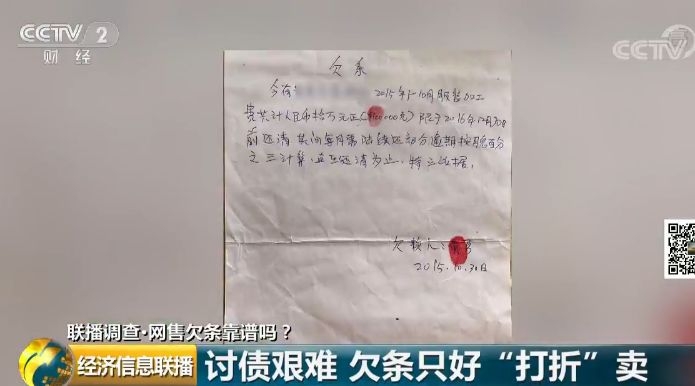 CCTV 2
财经
CCTV
欠条
今欠
2015年1-10月服装加工
费共计人民币拾万元正(¥100000元)限于2016年12月30日
前还清 其间每月需陆续还部分 逾期按 百分
之三计算,直至还清为止,特立此据。
欠款人:
2015.10.30日
联播调查·网售欠条靠谱吗?
经济信息联播
讨债艰难 欠条只好“打折”卖